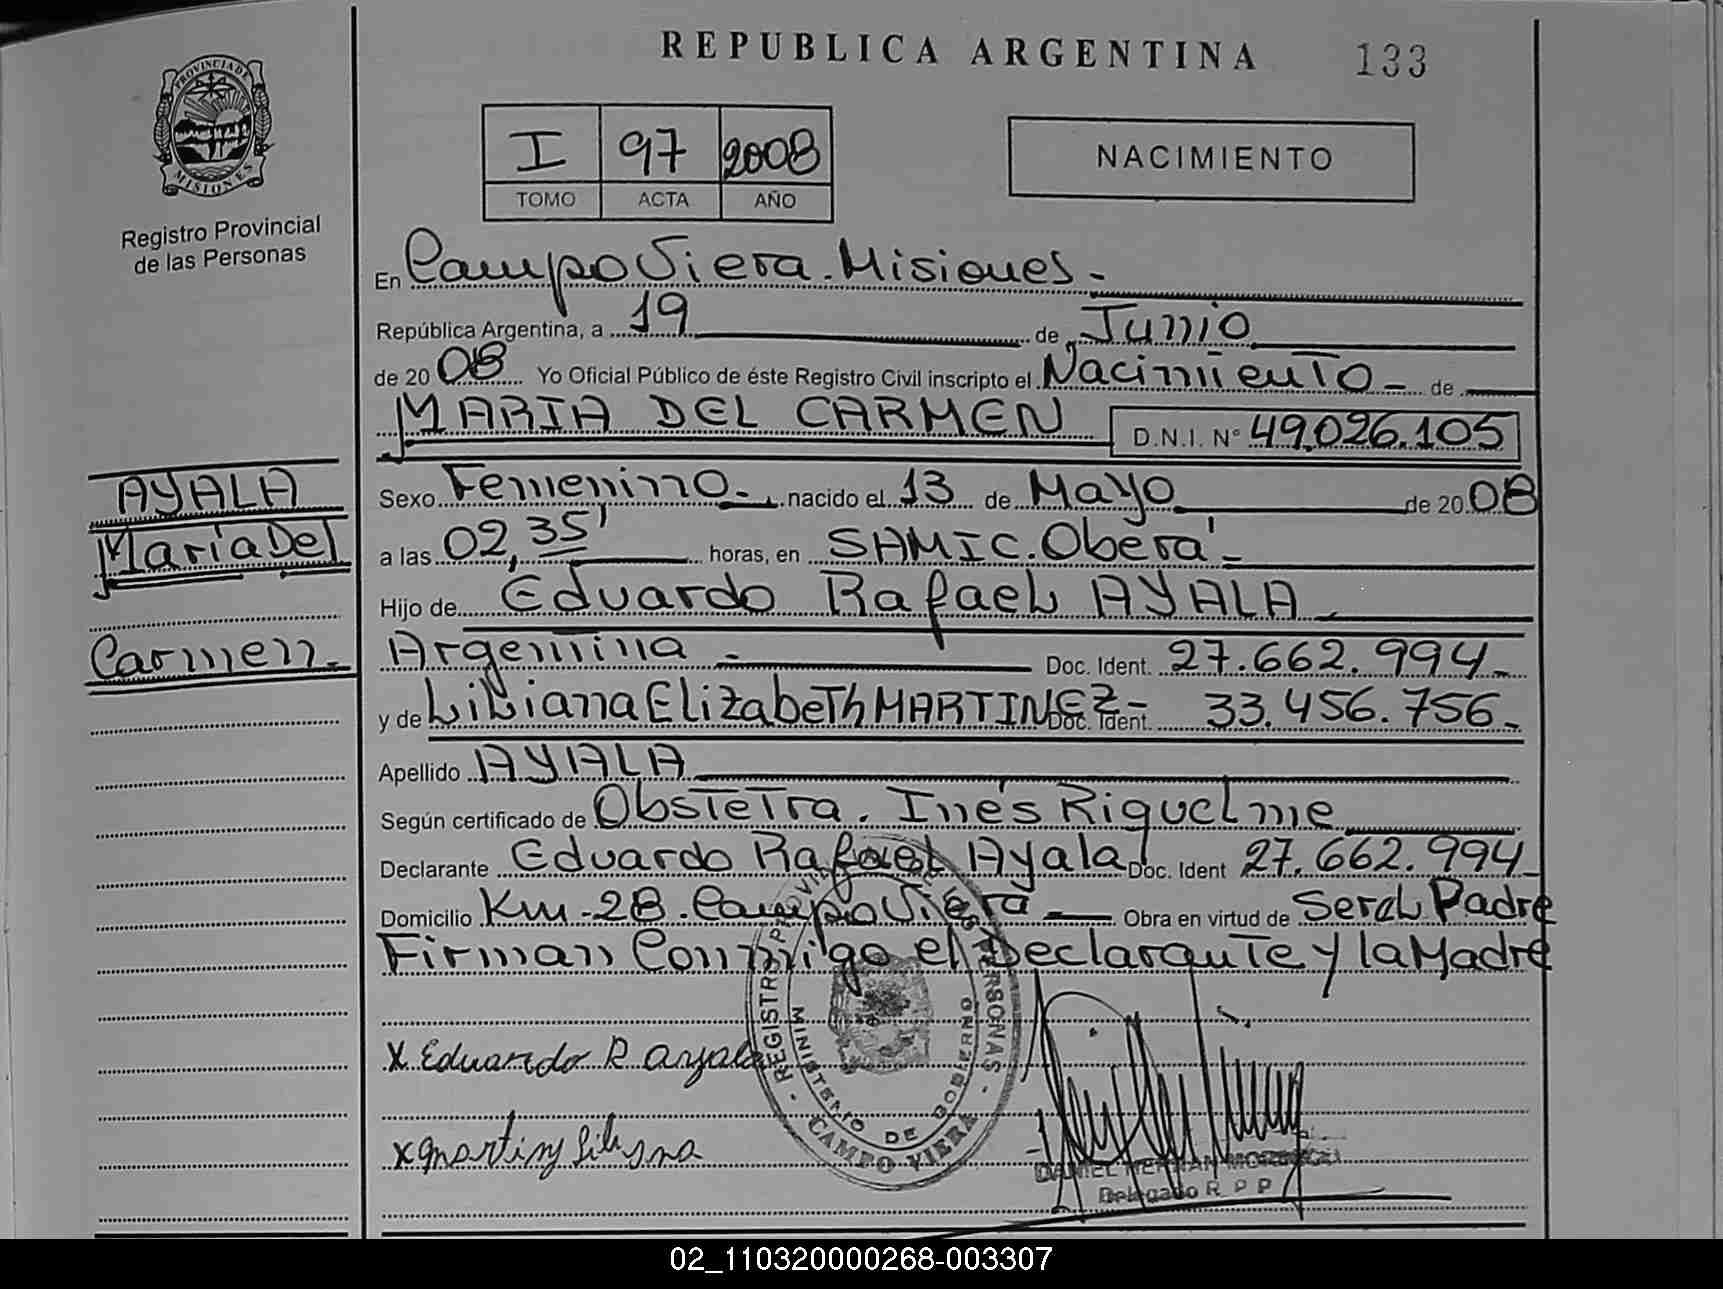 REPUBLICA ARGENTINA 133
PROVINCIA DE
MISIONES
Registro Provincial
de las Personas
I 97 2008
TOMO ACTA AÑO
NACIMIENTO
En Campo Viera. Misiones -
República Argentina, a 19 de Junio
de 2008 Yo Oficial Público de éste Registro Civil inscripto el Nacimiento - de
MARIA DEL CARMEN D.N.I. N° 49.026.105
AYALA
Maria Del
Carmen.-
Sexo Femenino - nacido el 13 de Mayo de 2008
a las 02,35' horas, en SAMIC. Oberá -
Hijo de Eduardo Rafael AYALA
Argentina - Doc. Ident. 27.662.994-
y de Liliana Elizabeth MARTINEZ - Doc. Ident. 33.456.756-
Apellido AYALA
Según certificado de Obstetra. Inés Riquelme
Declarante Eduardo Rafael Ayala Doc. Ident 27.662.994-
Domicilio Km - 28. Campo Viera - Obra en virtud de Seral Padre
Firman Conmigo el Declarante y la Madre
REGISTRO PROVINCIAL DE LAS PERSONAS
MINISTERIO DE GOBIERNO
CAMPO VIERA
x Eduardo R ayala
x martinz Liliana
DANIEL HERNAN
Delegado R P P
02_110320000268-003307